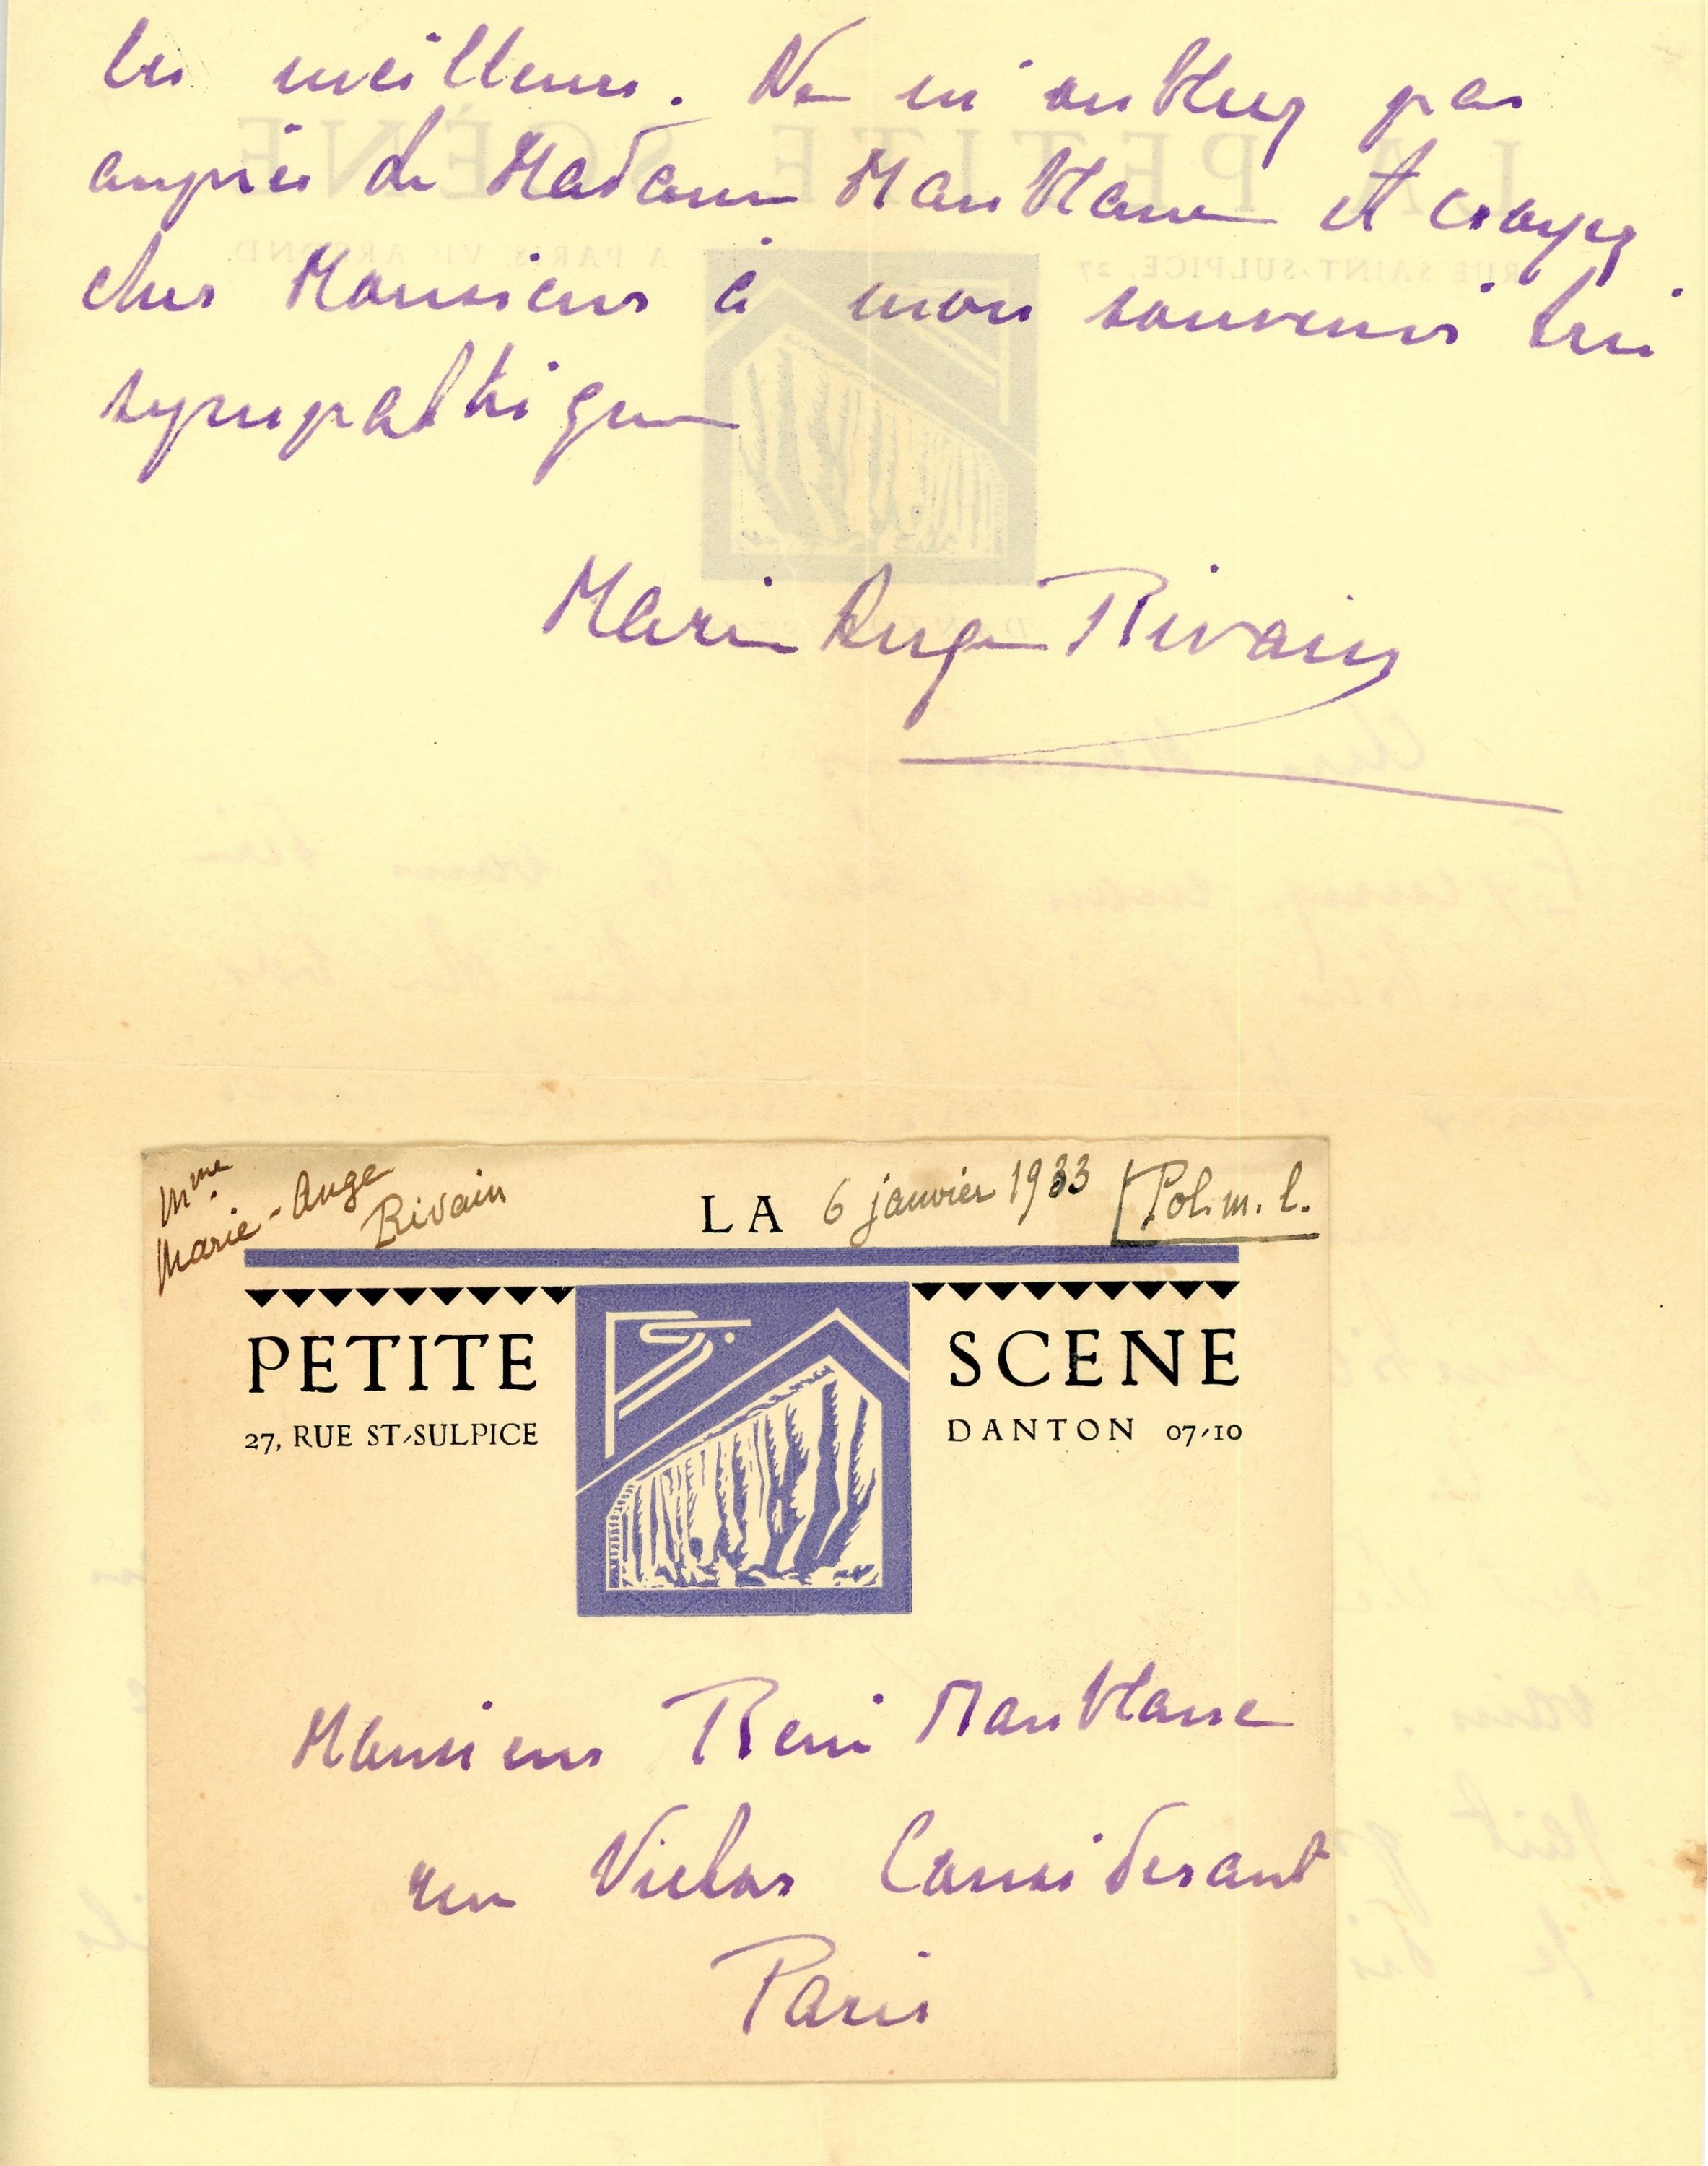 les meilleurs. Ne m'oubliez pas
auprès de Madame Maublanc et croyez
cher Monsieur à mon souvenir très
sympathique
Marie Ange Rivain
Mme
Marie-Ange
Rivain
LA 6 janvier 1933 [Pol. m. l.
PETITE SCENE
27, RUE ST-SULPICE DANTON 07-10
Monsieur René Maublanc
rue Victor Considerant
Paris